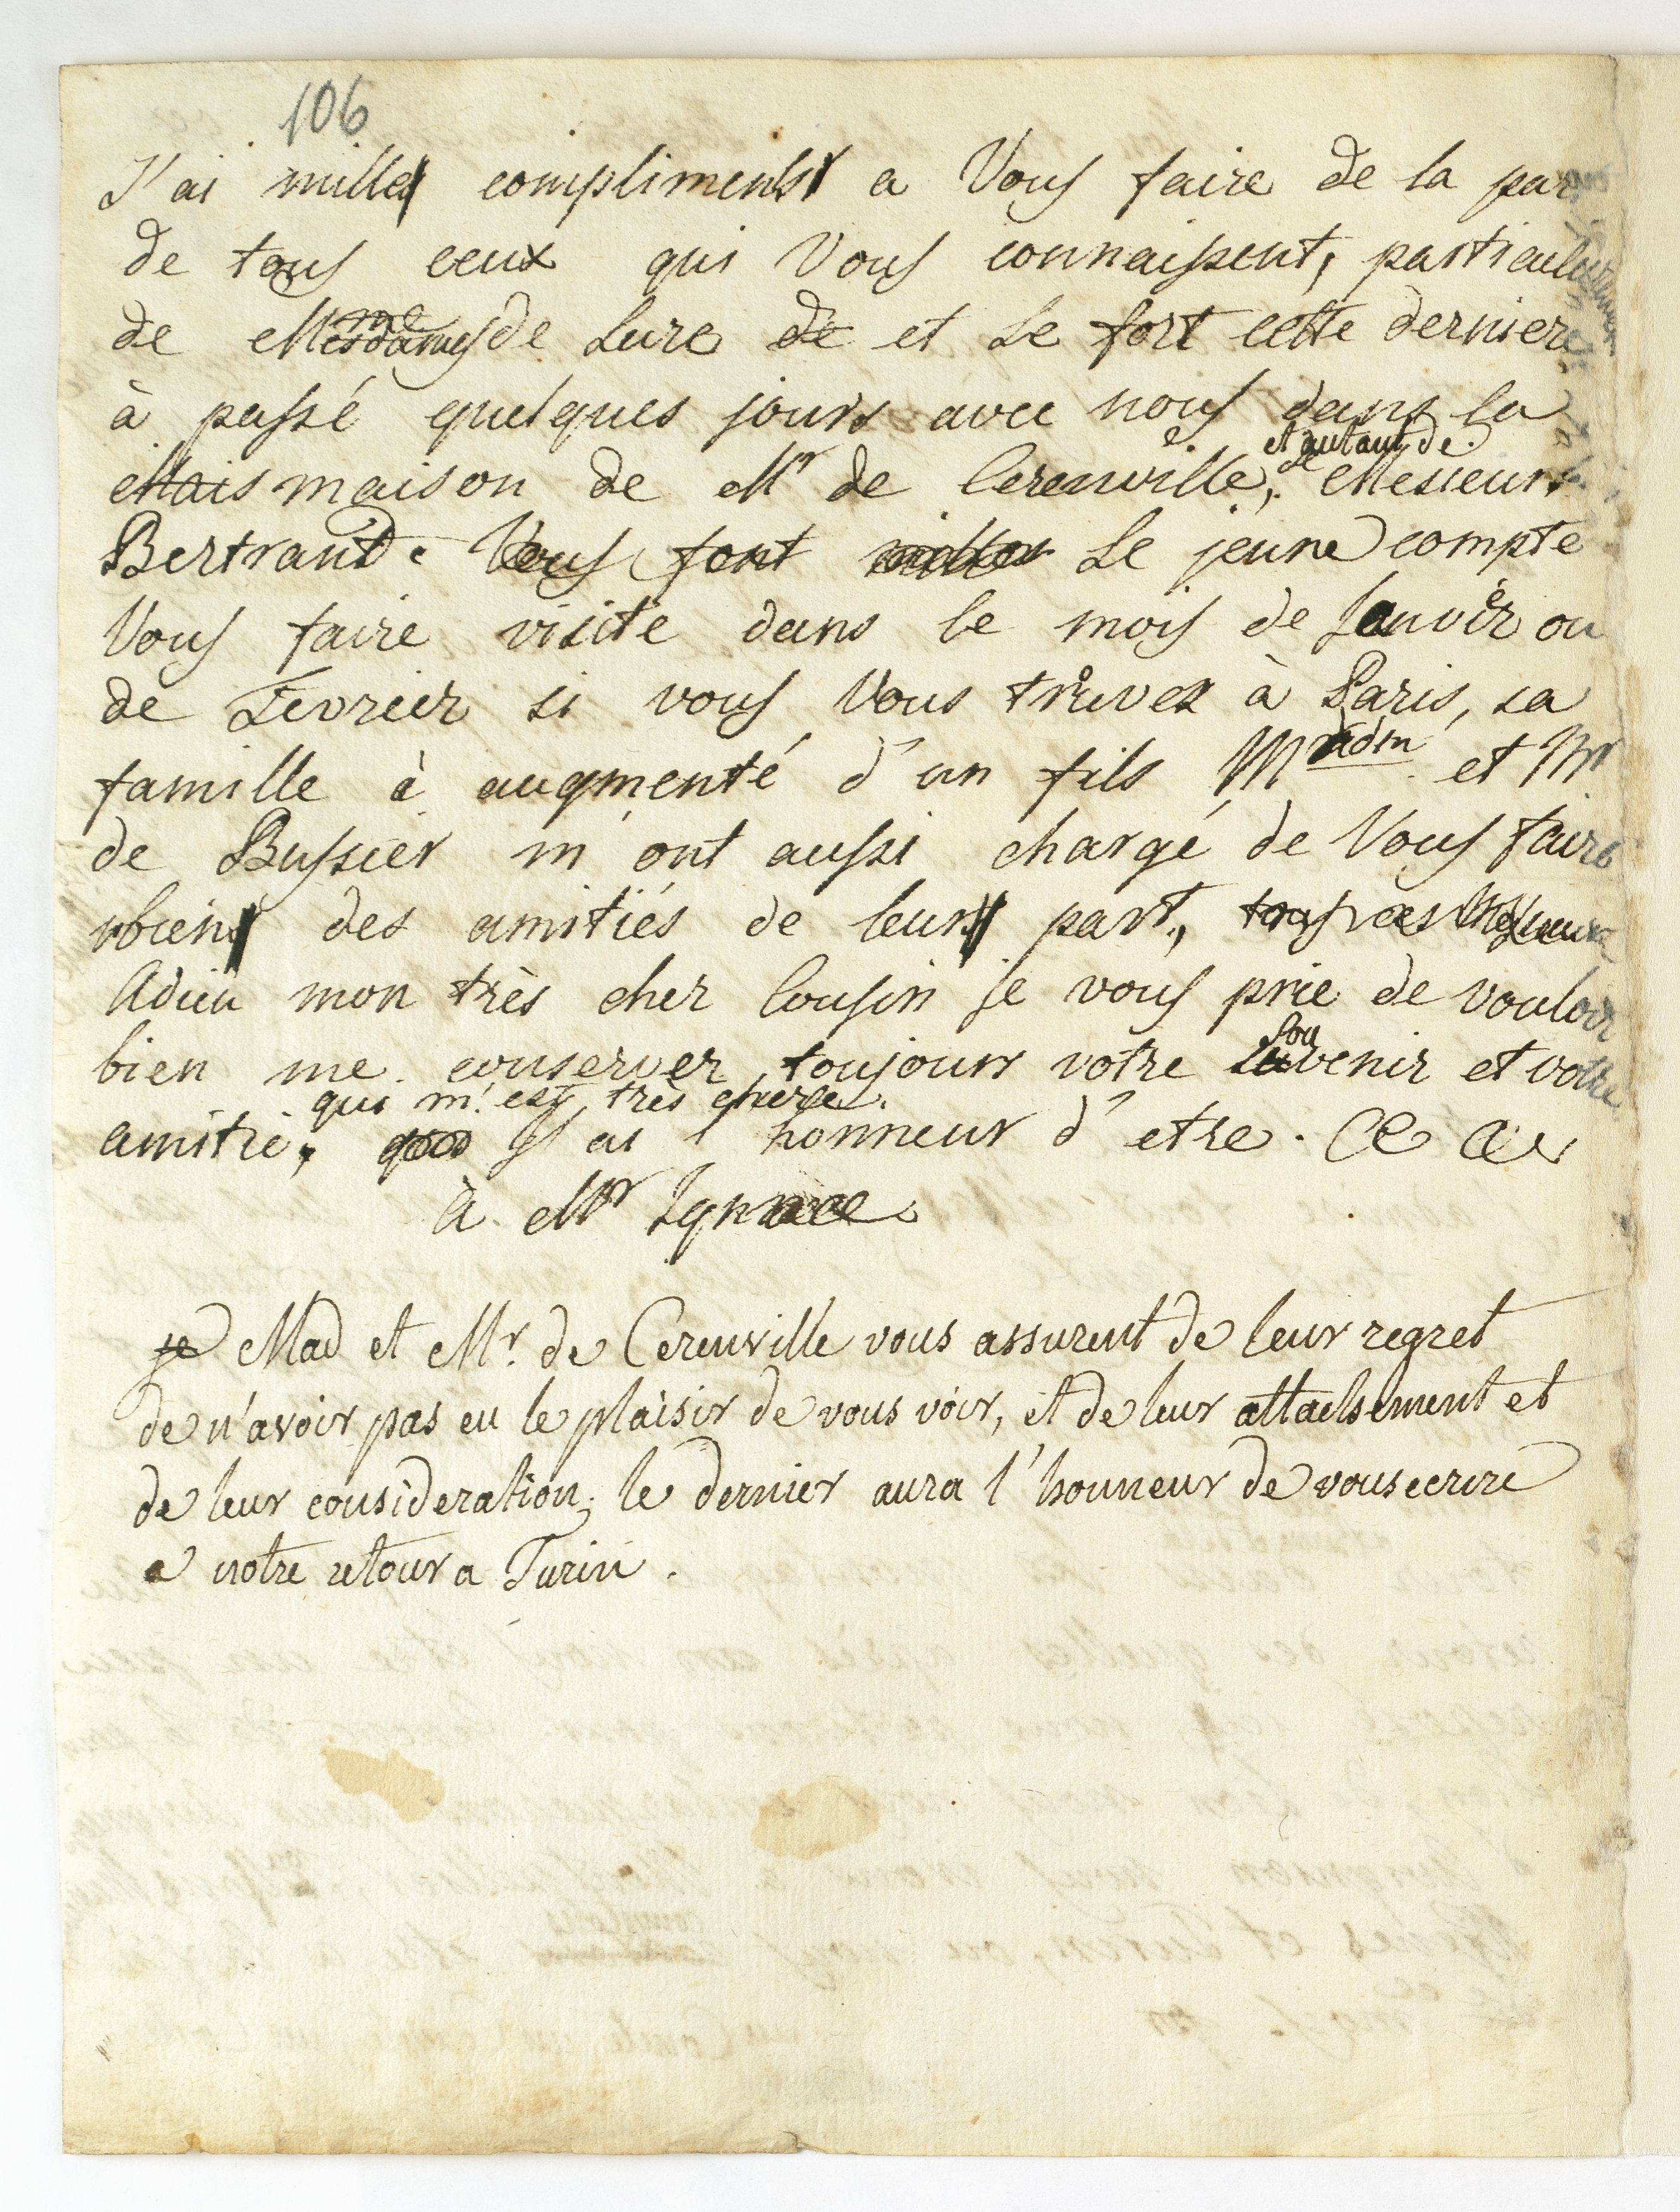 106
J'ai mille compliments a Vous faire de la par
de tous ceux qui Vous connaissent, particulierement
de Mesdames de Lure de et Le fort cette derniere
à passé quelques jours avec nous dans la
Mais maison de Mr de Cerenville, et autant de Messieurs
Bertrand. Vous font milles Le jeune compte
Vous faire visite dans le mois de Janvier ou
de Fevrier si vous Vous truvez à Paris, sa
famille à augmenté d'un fils Madm et Mr
de Bussier m'ont aussi chargé de Vous faire
bien des amitiés de leur part,
Adieu mon très cher Cousin je vous prie de vouloir
bien me conserver toujours votre souvenir et votre
qui m'est très chere.
amitié, J'ai l'honneur d'etre. &c &c
à Mr Ignace
je Mad et Mr. de Cerenville vous assurent de leur regret
de n'avoir pas eu le plaisir de vous voir, et de leur attachement et
de leur consideration; le dernier aura l'honneur de vous ecrire
a notre retour a Turin.